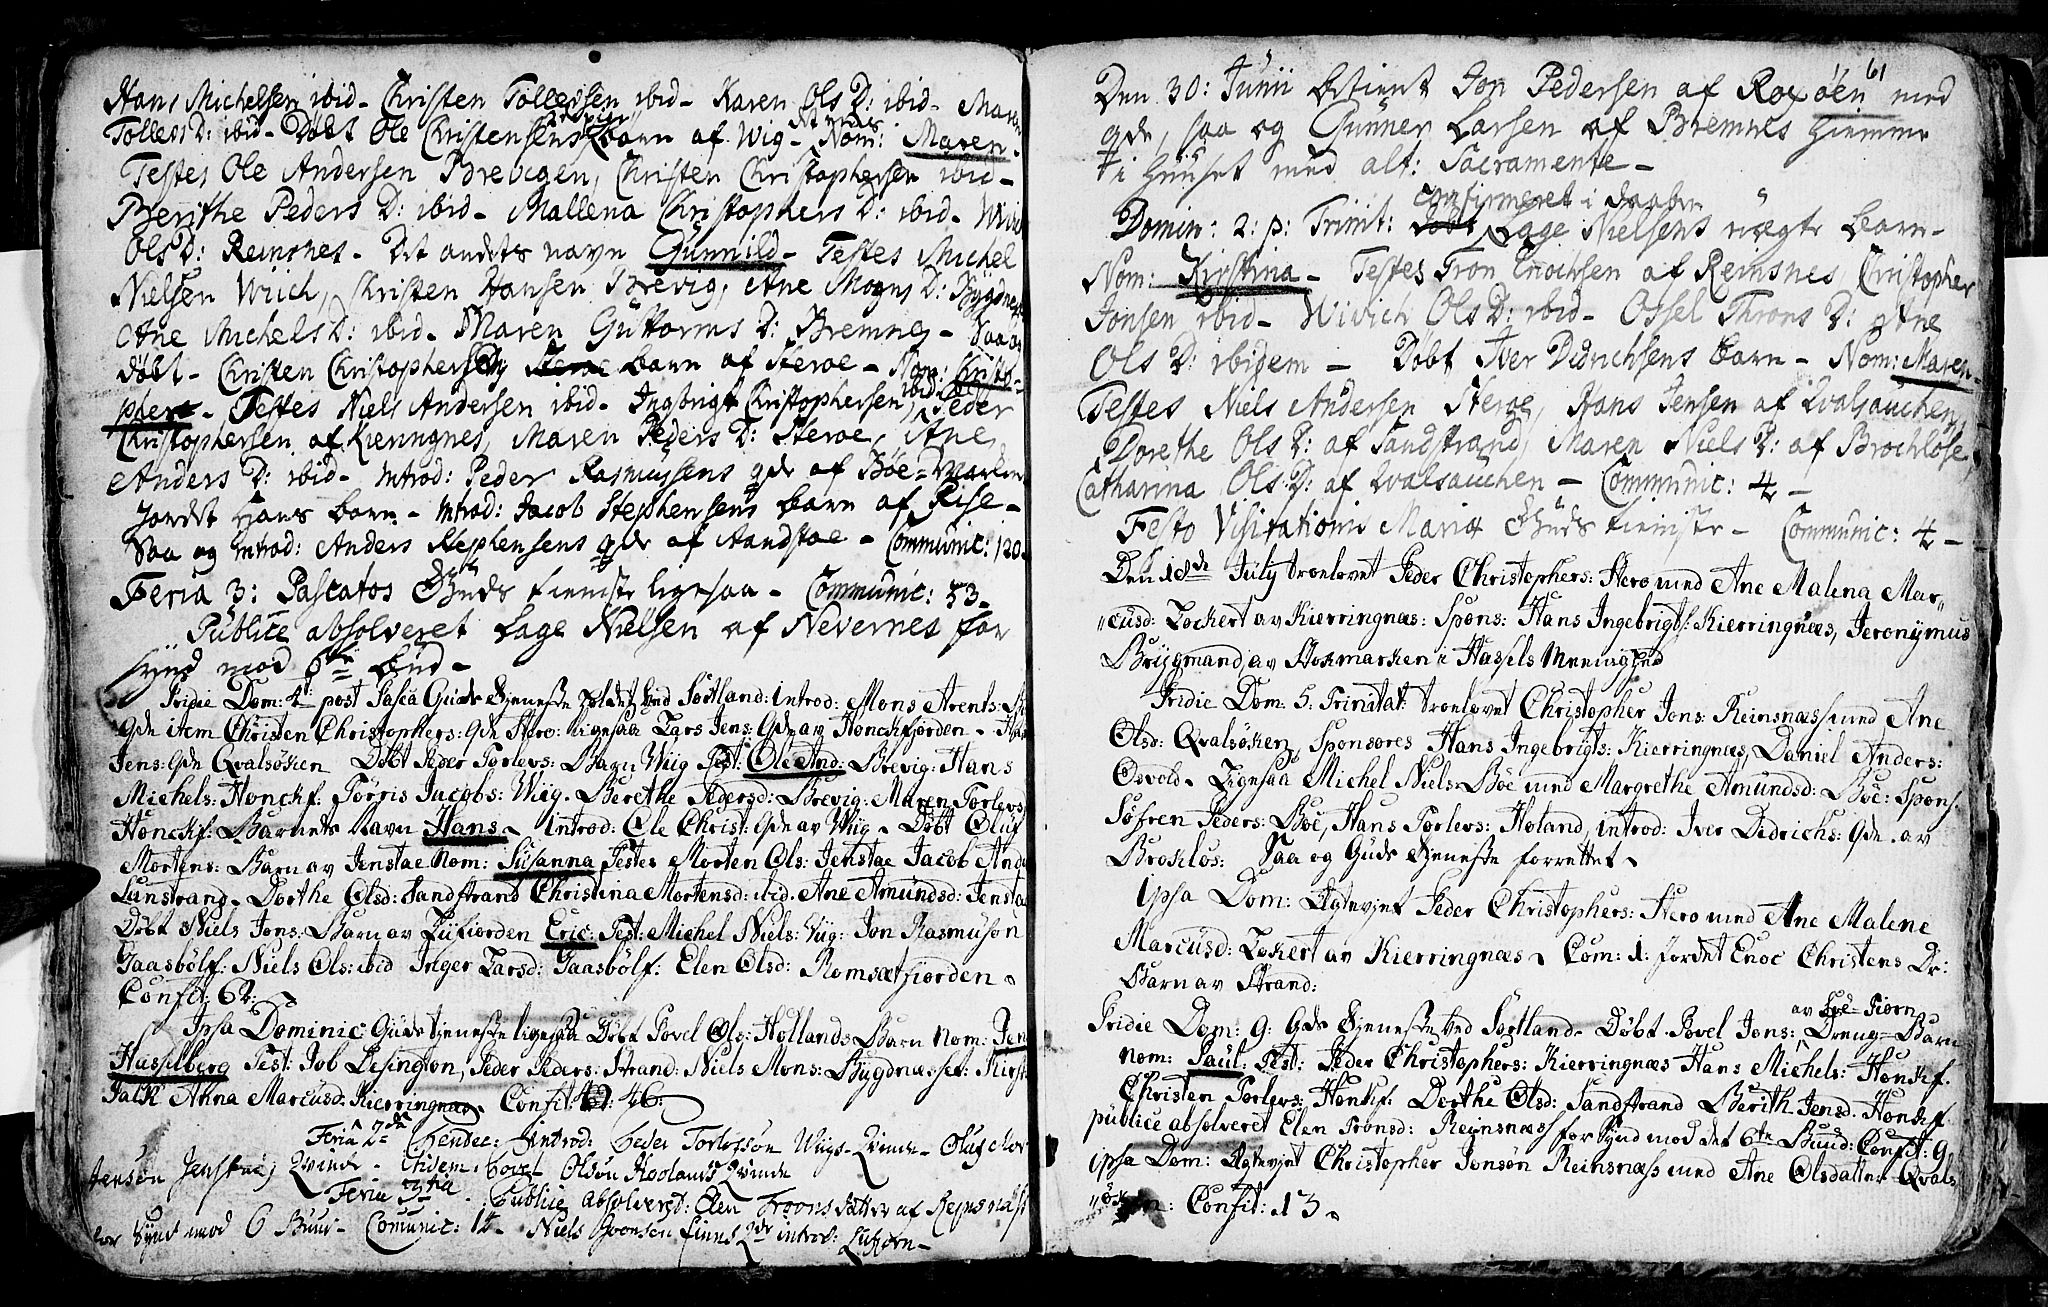 Hans Michelsen ibid - Christen Tollefsen ibid - Karen Ols D: ibid - Maren
Tollefs D: ibid - Døbt Ole Christensens 2 børn af Wig - Nom: Maren -
Testes Ole Andersen Brevigen, Christen Christophersen ibid -
Berithe Peders D: ibid - Mallena Christophers D: ibid - Wivi
Ols D: Reinsnes - Det andets navn Gunnild - Testes Michel
Nielsen Wiich, Christen Hansen Brevig, Ane Mogns D: Bygdnes
Ane Michels D: ibid - Maren Guttorms D: Bremnes - Saa og
døbt - Christen Christophersens barn af Steroe - Nom: Christo-
phere - Testes Niels Andersen ibid - Ingebrigt Christophersen ibid, Peder
Christophersen af Kieringnes, Maren Peders D: Steroe, Ane
Anders D: ibid - Introd: Peder Rasmussens qde af Böe - Marken
Jordet Hans barn - Introd: Jacob Stephensens barn af Rise -
Saa og introd: Anders Stephensens qde af Aandstae - Communic: 120
Feria 3: Pascatos Guds tieniste ligesaa - Communic: 53 -
Publice absolveret Lage Nielsen af Nevernes for
synd mod 6te bud -
Pridie Dom: 4 post Pasca Guds tjeneste holdet ved Sortland: introd: Mons Arents:
Qde item Christen Christophers: Qde Stero: ligesaa Lars Jens: Qde av Honckfjorden -
Jens: Qde Qvalsöken Döbt Peder Torlevs: Barn Wiig Test: Ole And: Brevig: Hans
Michels: Honckf: Törris Jacobs: Wiig. Berethe Pedersd: Brevig: Maren Torlevs
Honckf: Barnets Navn Hans - introd: Ole Christ: Qde av Wiig - Döbt Oluf
Mortens: Barn av Jenstae Nom: Susanna Testes Morten Ols: Jenstae Jacob And
Sanstrand - Dorthe Olsd: Sandstrand Christina Mortensd: ibid. Ane Amundsd: Jensta
Döbt Niels Jons: Barn av Lufiorden Eric: Test: Michel Niels: Wiig: Jon Rasmusön
Gaasbölf: Niels Ols: ibid Inger Larsd: Gaasbölf: Elen Olsd: Romsætfiorden -
Confit: 62:
Ipsa Dominic: Gudstjeneste ligesaa Döbt Povel Ols: Hollands Barn Nom: Jen
Hasselberg Test: Job Lesington, Peder Peders: Strand: Niels Mons: Bugdnæsset: Kirst
Falk Anna Marcusd: Kierringnæs - Confit: 46:
Feria 2da Pendec: Introd: Peder Torlefsøn Wiigs - Qvinde - Oluf Mor
Jensøn Jenstae, Qvinde - Itidem Povel Olsøn Hoolands Qvinde
Feria 3tia Publice absolveret: Elen Troons datter af Reinsnæs
for Synd mod 6 Buud - Comunic: 14 - Niels Joensen finns Qde introd: Lufiorn -
61
Den 30: Junii betient Jon Pedersen af Roxøen med
qde, saa og Gunner Larsen af Bremnes hiemme
i Huuset med alt: Sacramente -
Domin: 2: p: Trinit: confirmeret i daaben Lage Nielsens uægte barn -
Nom: Kirstina - Testes Tron Enochsen af Reinsnes, Christopher
Jonsen ibid - Wivich Ols D: ibid - Ossel Throns D: Ane
Ols D: ibidem - Døbt Iver Didrichsens barn - Nom: Maren -
Testes Niels Andersen Steroe, Hans Jensen af Qvalsauchen,
Dorethe Ols D: af Sandstrand, Maren Niels D: af Brochløse,
Catharina Ols: D: af Qvalsauchen - Communic: 4 -
Festo Visitationis Mariæ Guds tieniste - Communic: 4 -
Den 18de July troelovet Peder Christophers: Stero med Ane Malena Mar„
„cusd: Lockert av Kierringnæs: Spons: Hans Ingebrigts: Kierringnæs, Jeronymus
Brygmand av Stokmarken i Hassels Meenighed
Pridie Dom: 5. Trinitat: troelovet Christopher Jons: Reinsnæss med Ane
Olsd: Qvalsöken, Sponsores Hans Ingebrigts: Kierringnæs, Daniel Anders:
Osvold - Ligesaa Michel Niels: Böe med Margrethe Amundsd: Böe: Spons:
Söfren Peders: Böe, Hans Torlevs: Holand, introd: Iver Dedrichs: Qde. av
Brokløs: Saa og Guds tjeneste forrettet -
Ipsa Dom: Ægteviet Peder Christophers: Stero med Ane Malene
Marcusd: Lockert av Kierringnæs - Com: 1: Jordet Enoc Christens Dr:
Barn av Strand:
Pridie Dom: 9: Gds tjeneste ved Sortland - Döbt Povel Jons: Dreng-Barn
Nom: Paul: Test: Peder Christophers: Kierringnæs Hans Michels: Honckf.
Christen Torlevs: Honkf: Dorthe Olsd: Sandstrand Berith Jensd: Honckf
publice absolveret Elen Tronsd: Reinsnæss for Synd mod det 6te Buud: Confit: 9
ipsa Dom: Ægteviet Christopher Jonsön Reinsnæss med Ane Olsdatter Qvals
Confit: 13 -